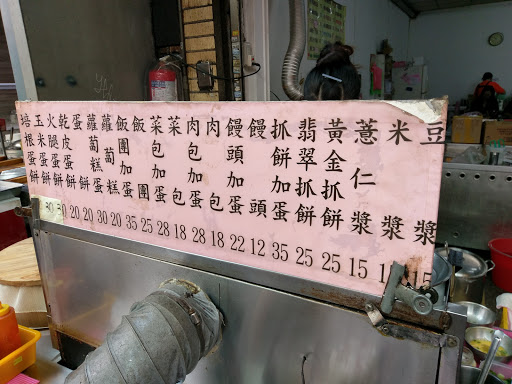 豆漿 15
米漿
薏仁漿 15
黃金抓餅 25
翡翠抓餅 25
抓餅加蛋 35
饅頭 12
饅頭加蛋 22
肉包 18
肉包加蛋 28
菜包 18
菜包加蛋 28
飯團 25
飯團加蛋 35
蘿蔔糕 20
蘿蔔糕蛋 30
蛋餅 20
乾皮蛋餅 20
火腿蛋餅
玉米蛋餅
培根蛋餅 30